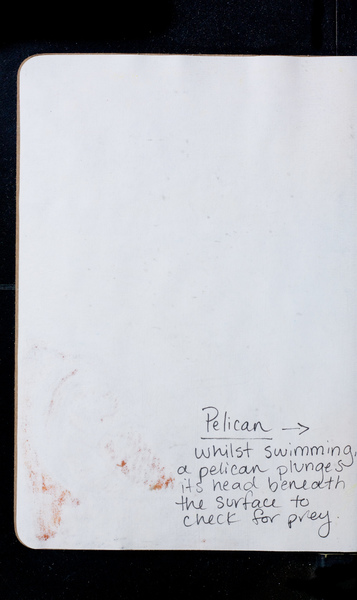 Pelican →
whilst swimming,
a pelican plunges
its head beneath
the surface to
check for prey.